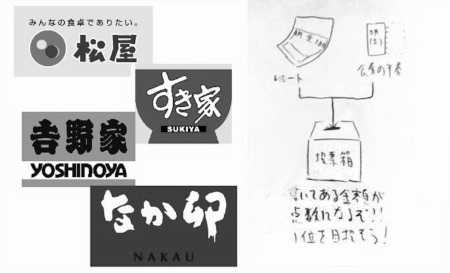 みんなの食卓でありたい。
松屋
すき家
SUKIYA
吉野家
YOSHINOYA
なか卯
NAKAU
レシート
投票箱
書いてある金額が
点数になるぞ!!
1位を目指そう!